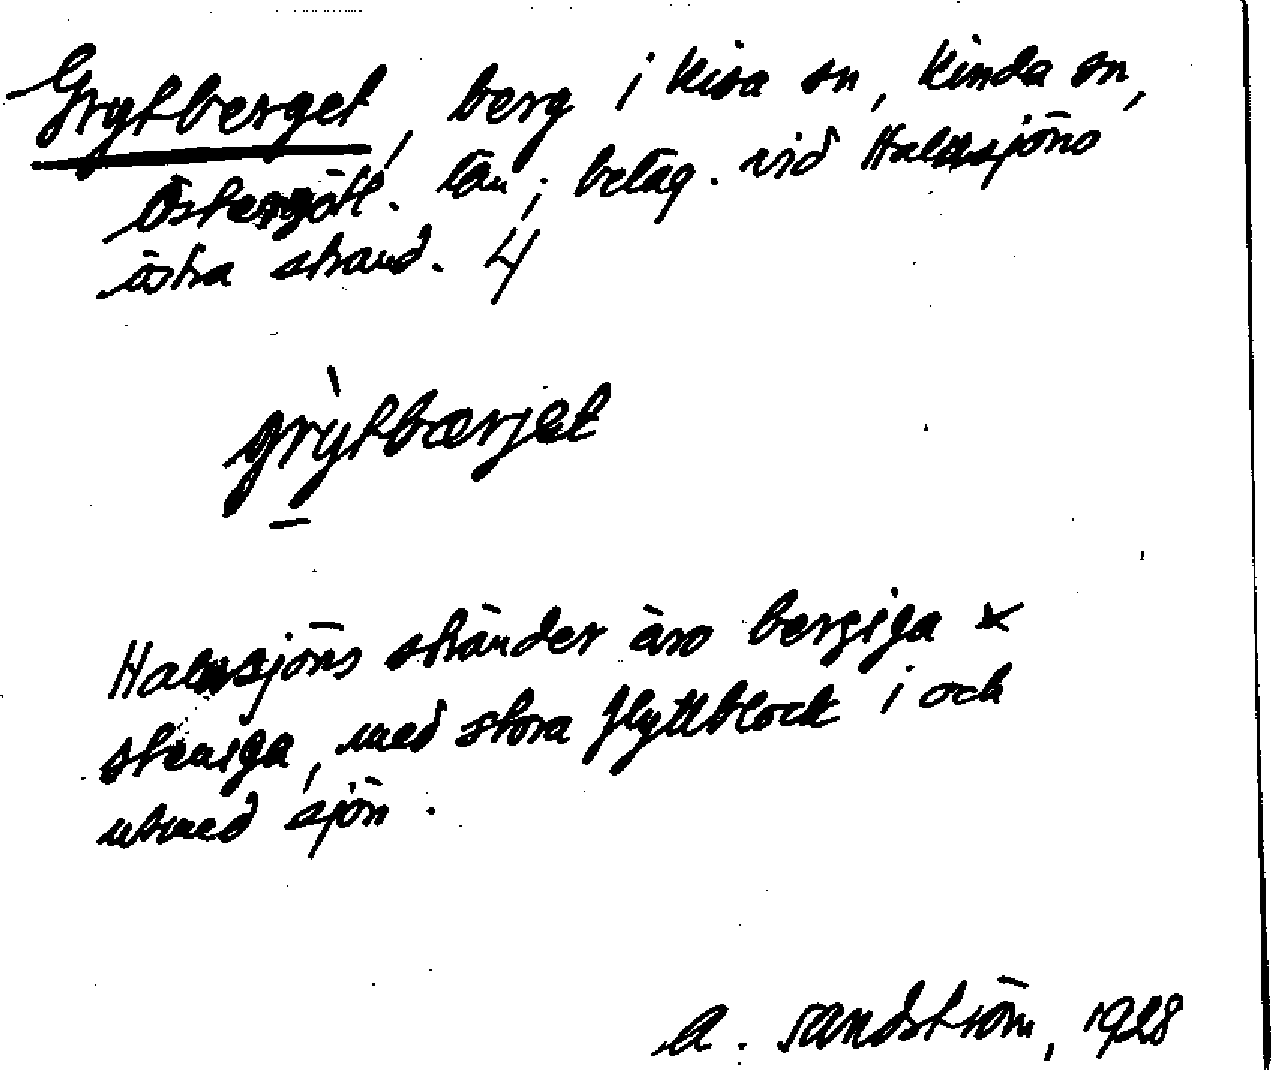 Grytberget, berg i Kisa sn, Kinda sn,
Östergötl. län; beläg. vid Halensjöns
östra strand. 4
grytbærjet
Halensjöns stränder äro bergiga &
steniga, med stora flyttblock i och
utmed sjön.
A. Sandström, 1928